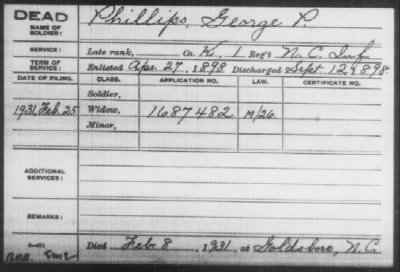 DEAD Phillips, George P.
NAME OF SOLDIER:
SERVICE: Late rank, Co. K, 1 Reg't N.C. Inf
TERM OF SERVICE: Enlisted Apr. 27, 1898 Discharged Sept. 12, 1898.
DATE OF FILING. CLASS. APPLICATION NO. LAW. CERTIFICATE NO.
Soldier,
1931, Feb. 25 Widow, 1687482 M/26.
Minor,
ADDITIONAL SERVICES:
REMARKS:
Died Feb. 8, 1931, at Goldsboro, N.C.